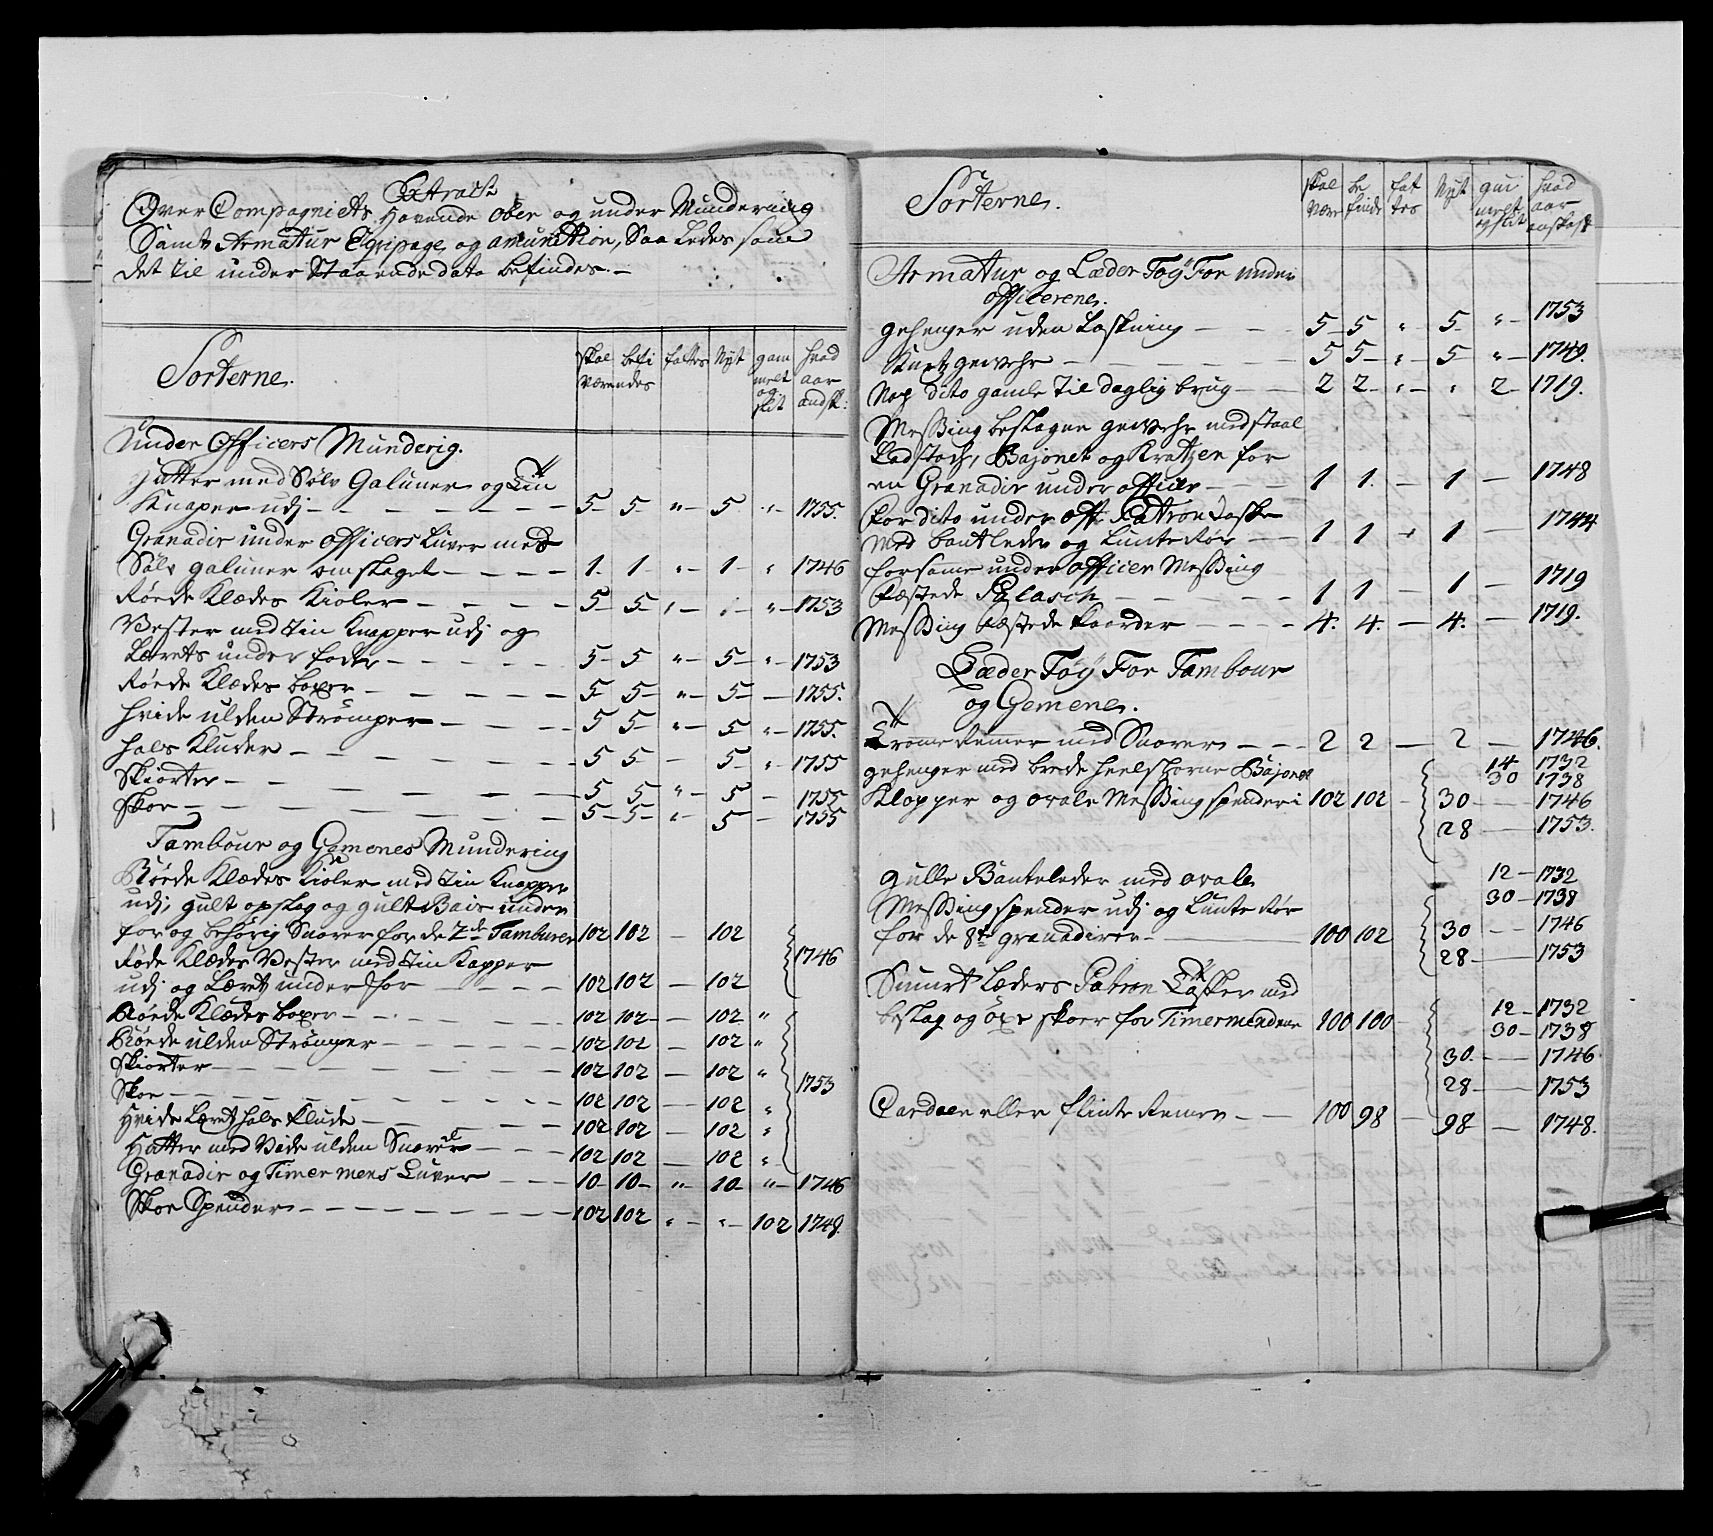 Extract
Over Compagniets Havende Ober og under Mundering
Samt Armatur Eqvipage og amunition, Saa Ledes som
det til under Staaende dato befindes. —
Sorterne.
skal værre
befindes
fattes
Nyt
gammelt og slit
hvad aar andsk:
Under Officers Munderig.
Hatter med Sølv Galuner og Tin
Knaper udj — 5 — 5 " — 5 " — 1755.
Granadir under officers Luver med
Sølv galuner omslaget — 1. 1 — " — 1 — " 1746
Røede Klædes Kioler — 5 — 5 " — " — 1753
Vester med tin Knapper udj og
Lærets under foder — 5 — 5 " — 5 — " — 1753
Røede Klædes boxer — 5 5 — " — 5 — — 1755.
hvide ulden Strømper — 5 5 — " — 5 " — 1755.
hals Kluder — 5 5 — 5 — " 1755
Skiorter — 5 5 " — 5 — 1755
Skoe — 5 — 5 — " 5 — 1755
Tambour og Gemenes Mundering
Røede Klædes Kioler med tin Knapper
udj, gult opslag og gult Bais under
for og behørig Snorer for de 2de Tamburer 102 102 — 102
Røde Klædes Vester med tin Kapper 1746
udj og Læret under for — 102 102 — 102
Røede Klædes boxer — 102 102 — 102 "
Røede ulden Strømper — 102 102 — 102 "
Skiorter — 102 102 — 102 "
Skoe — 102 102 — 102 " 1753
Hvide Læret hals Klude — 102 102 — 102 "
Hatter med Uldne Snorer — 102 102 — 102 "
Granadir og Timermens Luver — 10 — 10 — " — 10 — " — 1746
Skoe Spender — 102 102 " — " — 102 1748.
Sorterne.
skal værre
befinde
fattes
Nyt
gammelt og slit
hvad aar anskaft
Armatur og Læder Tøy For under
officerene.
gehenger uden Laskning — 5 — 5 " 5 — " — 1753
Kurtz gewehr — 5 5 — " 5 — " — 1749.
Nog dito gamle til daglig brug — 2 2 — " — " 2 — 1719.
Messing beslagen gewehr med staal
Ladstoch, Bajonet og Kratzer for
en Granadir under officer — 1 1. — 1 — 1748
for dito under off: Patron Taske
med bantleder og Lunte Rør — 1 1 — 1 — 1744
for samme under officer Messing
fæstede Palasch — 1 1 — 1 — 1719
Messing fæstede Kaarder — 4. 4. — 4. — 1719.
Læder Tøy For Tambour
og Gemene.
Tromme Remer med Snorer — 2 2 — 2 — 1746.
14 1732
gehenger med brede heelskorne Bajonet 30 1738
Klopper og ovale Messing spender i 102 102 — 30 — 1746
28 — 1753.
12 — 1732
gulle Banteleder med ovale
Messing spender udj og Lunte Rør 30 — 1738
for de 8te granadirer — 100 102 30 — 1746
28 — 1753
Smurt Læders Patron Tasker med 12 — 1732
beslag og øxe skoer for Timermendene 100 100 — 30 — 1738
30 — 1746
28 — 1753
Cardoen eller flinte Remer — 100 98 — 98 — 1748.